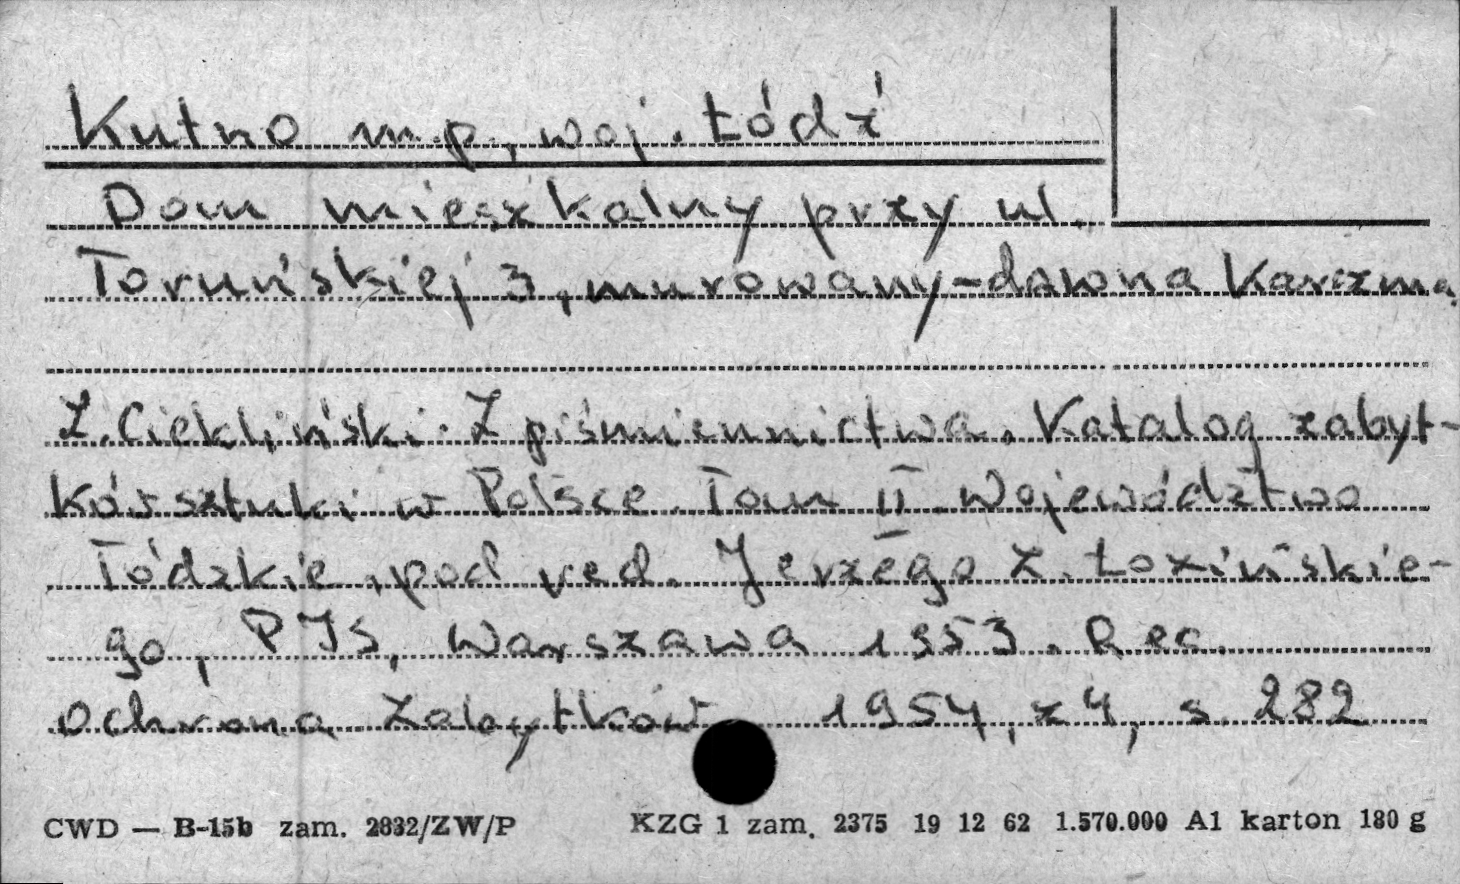 Kutno m.p., woj. Łódź
Dom mieszkalny przy ul.
Toruńskiej 3, murowany - dawna Karczma
Z. Ciekliński. Z piśmiennictwa. Katalog zabyt-
ków sztuki w Polsce. Tom II. Województwo
Łódzkie, pod red. Jerzego Z. Łozińskie-
go, PIS, Warszawa 1953. Rec.
Ochrona Zabytków 1954, z 4, s. 282
CWD — B-15b zam. 2832/ZW/P KZG 1 zam. 2375 19 12 62 1.570.000 A1 karton 180 g